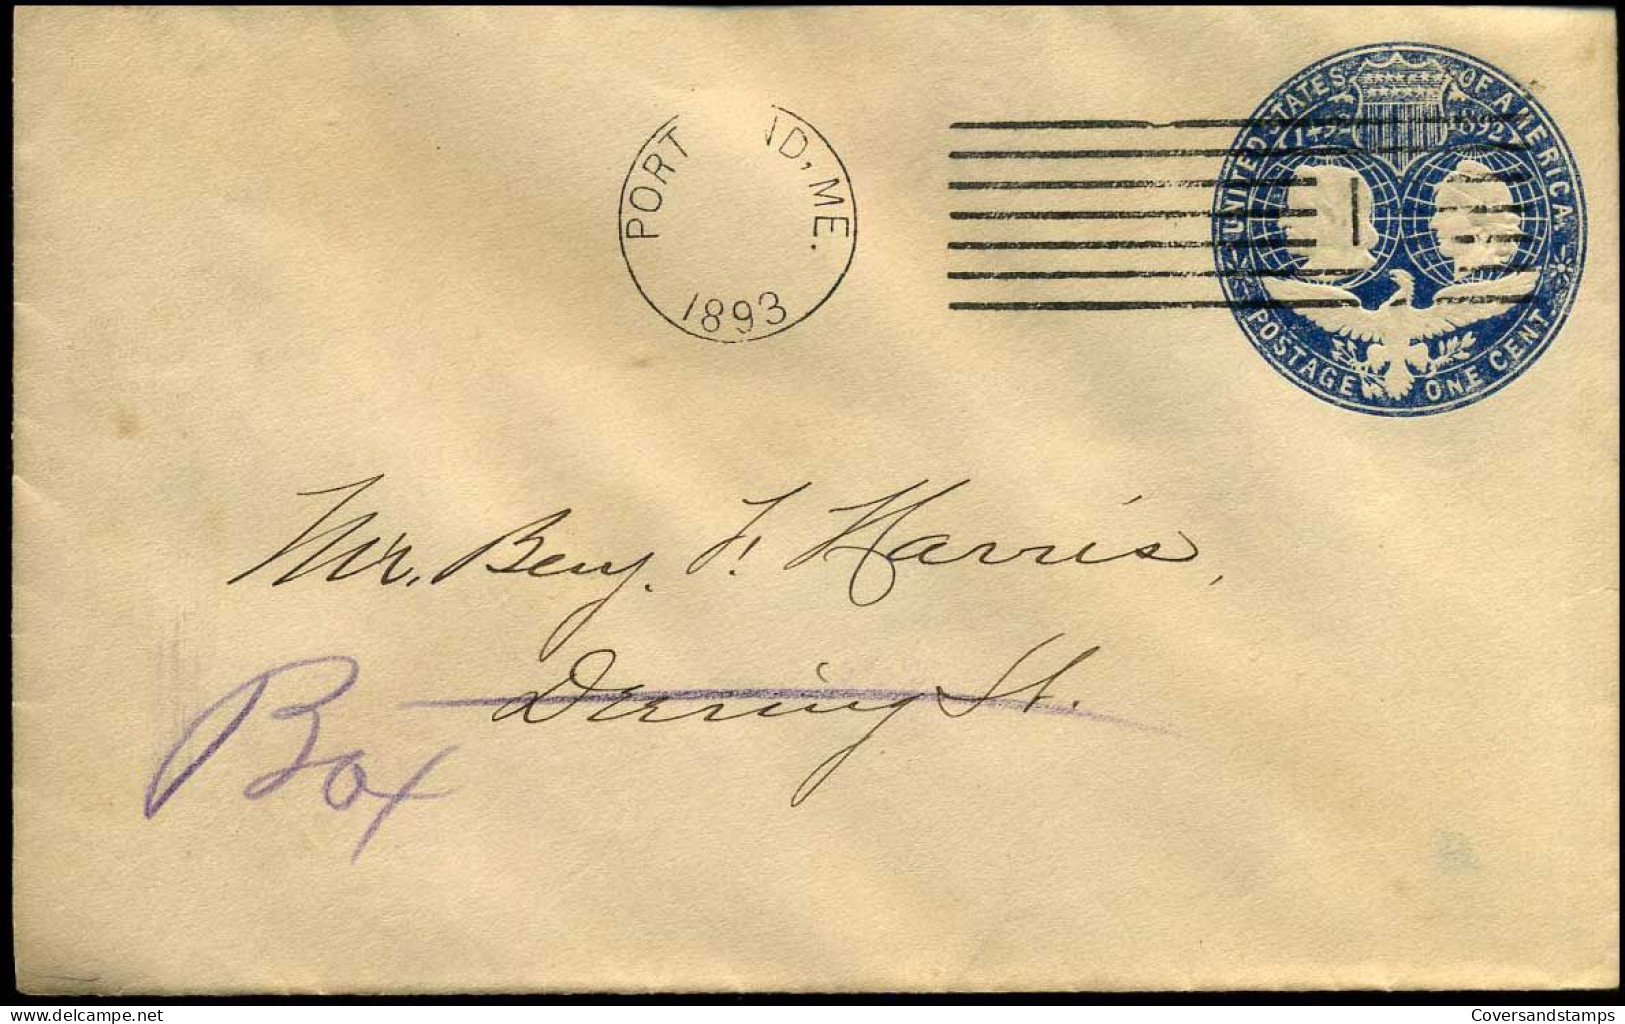 PORT ND, ME.
1893
UNITED STATES OF AMERICA
1492 1892
1
POSTAGE ONE CENT
Mr. Benj. F. Harris,
Deering St.
Box
delcampe.net
Coversandstamps